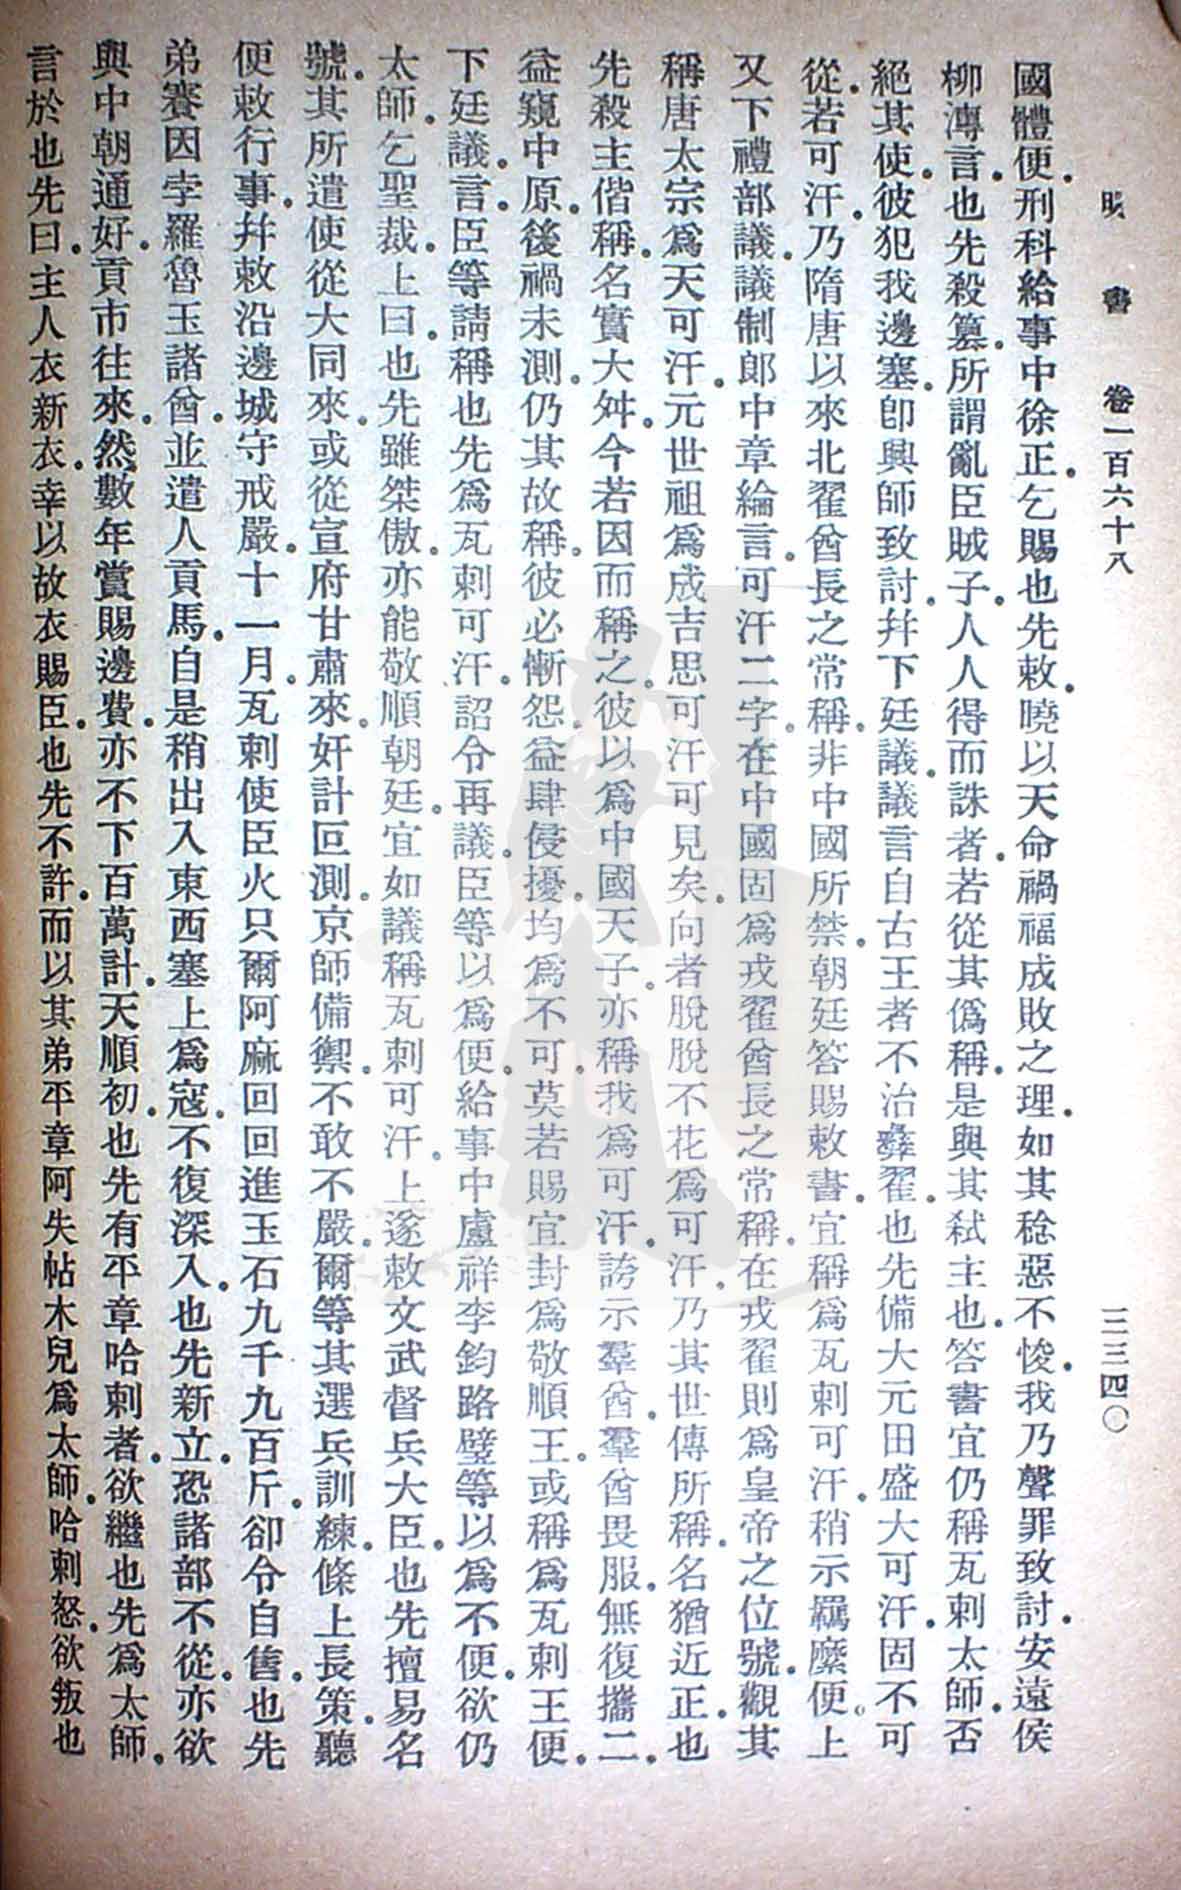 明書 卷一百六十八 三三四〇
國體便。刑科給事中徐正。乞賜也先敕。曉以天命禍福成敗之理。如其稔惡不悛。我乃聲罪致討。安遠侯
柳溥言。也先殺篡。所謂亂臣賊子。人人得而誅者。若從其僞稱。是與其弒主也。答書宜仍稱瓦剌太師。否
絕其使。彼犯我邊塞。卽興師致討。幷下廷議。議言自古王者不治彝翟。也先備大元田盛大可汗。固不可
從。若可汗。乃隋唐以來北翟酋長之常稱。非中國所禁。朝廷答賜敕書。宜稱爲瓦剌可汗。稍示羈縻便。上
又下禮部議。議制郎中章綸言。可汗二字。在中國固爲戎翟酋長之常稱。在戎翟則爲皇帝之位號。觀其
稱唐太宗爲天可汗。元世祖爲成吉思可汗可見矣。向者脫脫不花爲可汗。乃其世傳所稱。名猶近正。也
先殺主偕稱。名實大舛。今若因而稱之。彼以爲中國天子。亦稱我爲可汗。誇示羣酋。羣酋畏服。無復攜二。
益窺中原。後禍未測。仍其故稱。彼必慚怨。益肆侵擾。均爲不可。莫若賜宜封爲敬順王。或稱爲瓦剌王便。
下廷議。言臣等請稱也先爲瓦剌可汗。詔令再議。臣等以爲便。給事中盧祥李鈞路璧等。以爲不便。欲仍
太師。乞聖裁。上曰。也先雖桀傲。亦能敬順朝廷。宜如議稱瓦剌可汗。上遂敕文武督兵大臣。也先擅易名
號。其所遣使從大同來。或從宣府甘肅來。奸計叵測。京師備禦。不敢不嚴。爾等其選兵訓練。條上長策。聽
便敕行事。幷敕沿邊城守戒嚴。十一月。瓦剌使臣火只爾阿麻回回進玉石九千九百斤。卻令自售。也先
弟賽因孛羅魯玉諸酋。並遣人貢馬。自是稍出入東西塞上爲寇。不復深入。也先新立。恐諸部不從。亦欲
與中朝通好。貢市往來。然數年賞賜邊費。亦不下百萬計。天順初。也先有平章哈剌者。欲繼也先爲太師。
言於也先曰。主人衣新衣。幸以故衣賜臣。也先不許。而以其弟平章阿失帖木兒爲太師。哈剌怒。欲叛也